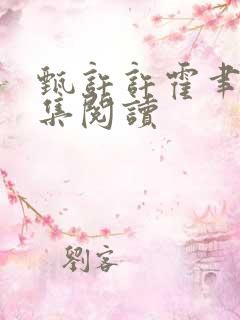 甄許許霍聿
集閱讀
劉客